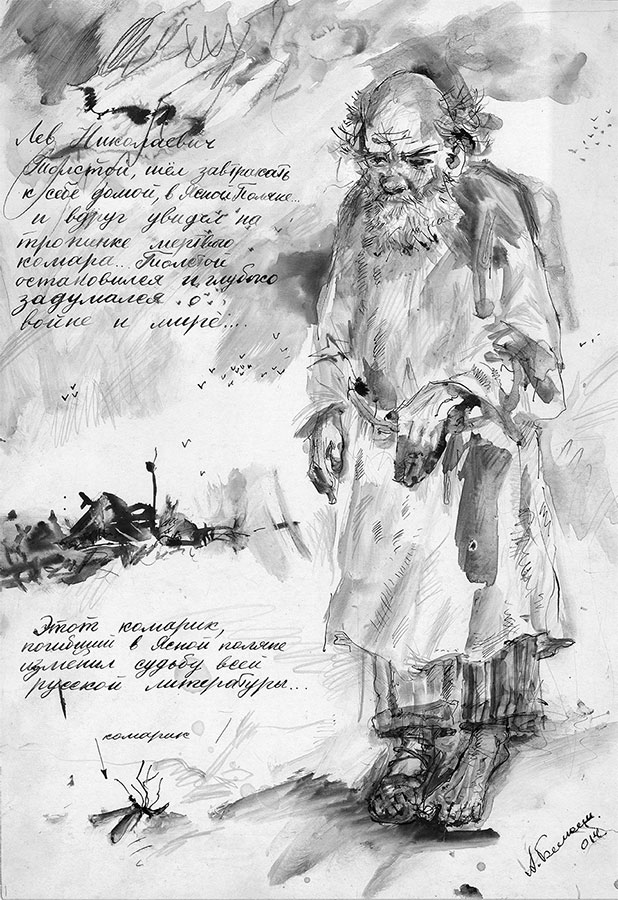 Лев Николаевич
Толстой, шёл завтракать
к себе домой, в Ясной Поляне...
и вдруг увидел на
тропинке мертвого
комара... Толстой
остановился и глубоко
задумался о
войне и мире...
Этот комарик,
погибший в Ясной поляне
изменил судьбу всей
русской литературы...
комарик